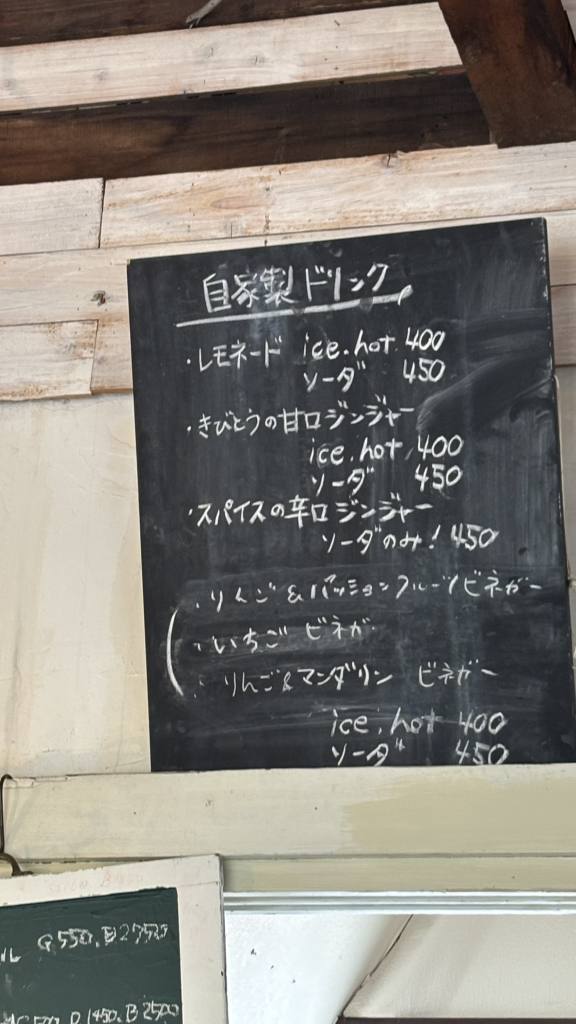 自家製ドリンク
・レモネード ice.hot 400
ソーダ 450
・きびとうの甘口ジンジャー
ice.hot 400
ソーダ 450
・スパイスの辛口ジンジャー
ソーダのみ! 450
・りんご&パッションフルーツビネガー
・いちご ビネガー
・りんご&マンダリン ビネガー
ice.hot 400
ソーダ 450
ル G550. B2750
500. D1450. B2500